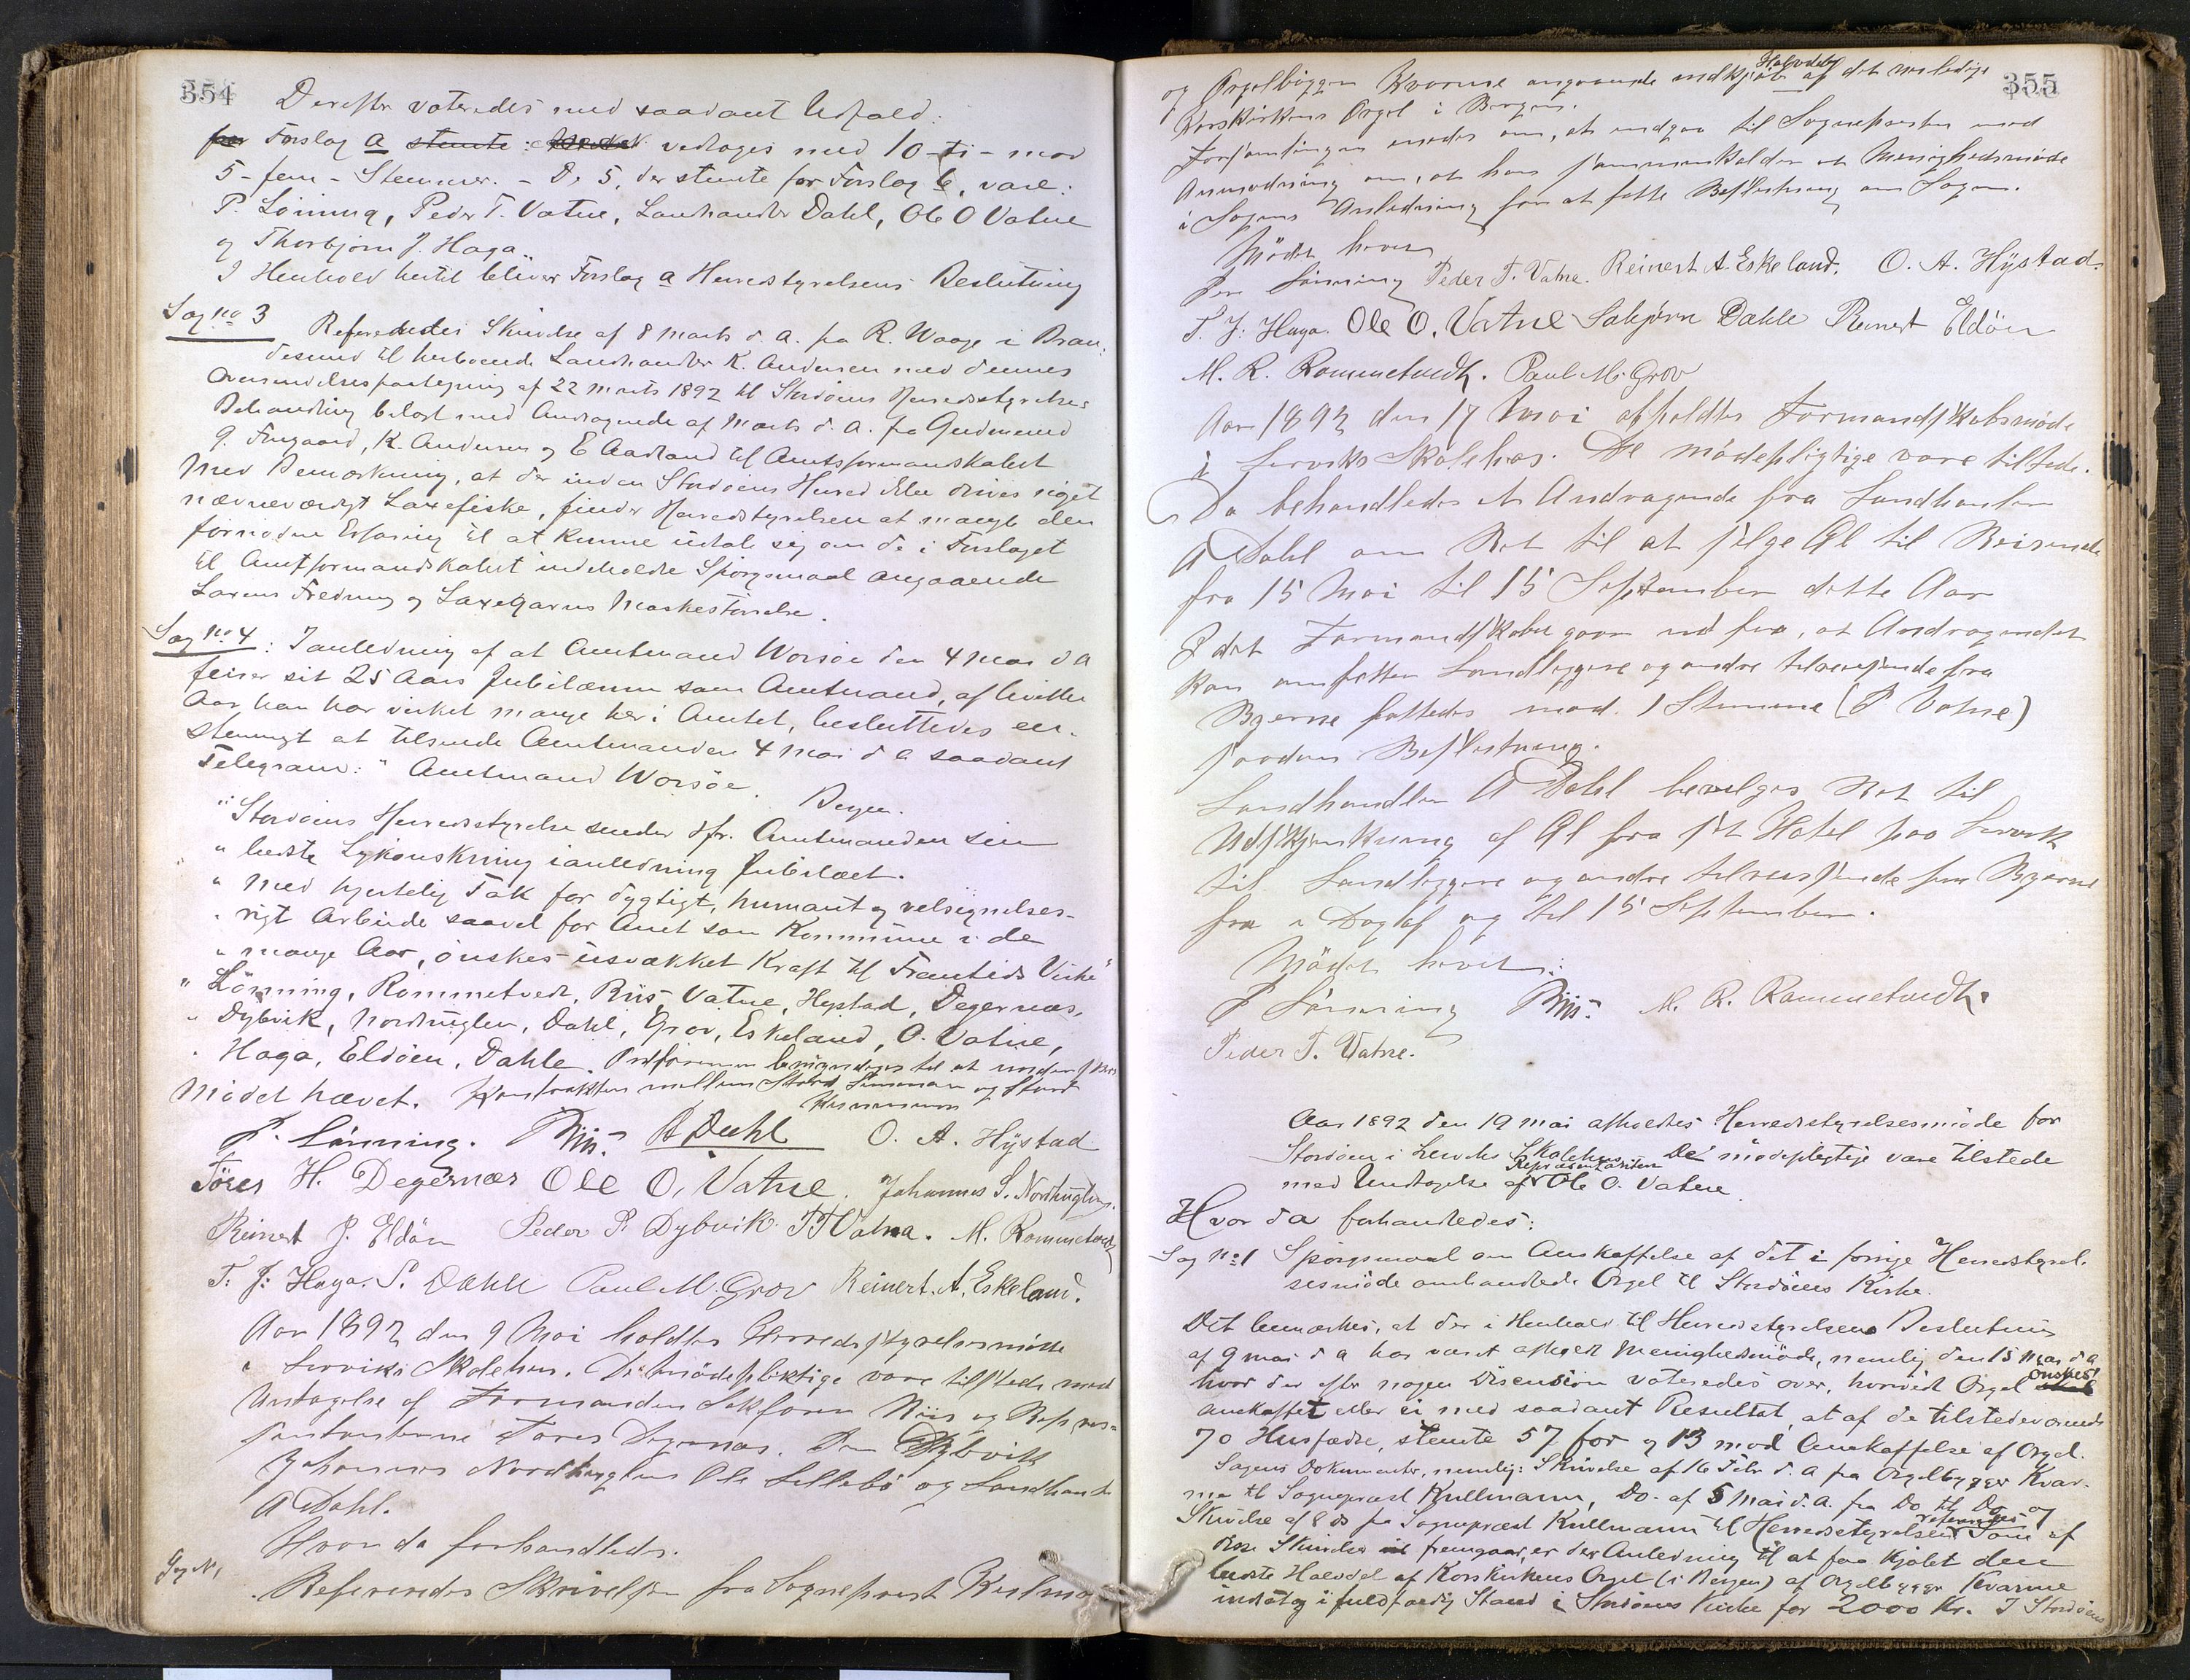 354
Derefter voteredes med saadant Udfald:
for Forslag a stemte: vedtages med 10-ti-mod
5-fem-Stemmer. - De 5, der stemte for Forslag b, vare:
P. Lönning, Peder T. Vatne, Landhandler Dahl, Ole O Vatne
og Thorbjörn J. Haga.
I Henhold hertil bliver Forslag a Herredstyrelsens Beslutning
Sag no 3
Refereredes Skrivelse af 8 Marts d. A. fra R. Waage i Bran-
desund til herboende Landhandler K. Andersen med dennes
Oversendelsespaategning af 22 Marts 1892 til Stordöens Herredsstyrelses
Behandling bilagt med Andragende af Marts d. A. fra Gudmund
G. Frugaard, K. Andersen og E Aadland til Amtsformandskabet
Med Bemærkning, at der inden Stordöens Herred ikke drives noget
nævneværdigt Laxefiske, finder Herredstyrelsen at mangle den
fornödne Erfaring til at kunne udtale sig om de i Forslaget
til Amtformandskabet indeholdte Spörgsmaal angaaende
Laxens Fredning og Laxegarns Maskestörrelse.
Sag no 4: Ianledning af at Amtmand Worsöe den 4 Mai d A
feirer sit 25 Aars Jubilæum som Amtmand, af hvilke
Aar han har virket mange her i Amtet, besluttedes een-
stemmigt at tilsende Amtmanden 4 Mai d A saadant
Telegram: " Amtmand Worsöe. Bergen.
" Stordöens Herredsstyrelse sender Hr. Amtmanden sin
" bedste Lykönskning ianledning Jubilæet.
" Med hjertelig Tak for dygtigt, humant og velsignelses-
" rigt Arbeide saavel for Amt som Kommune i de
" mange Aar, önskes usvækket Kraft til Fremtids Virke"
" Lönning, Rommetvedt, Riis, Vatne, Hystad, Degernæs,
" Dybvik, Nordhuglen, Dahl, Grov, Eskeland, O. Vatne,
" Haga, Eldöen, Dahle. Ordföreren bemyndiges til at underskrive
Mödet hævet. Kontrakten mellem Stord og Stord
Kommune
P. Lönning. Riis. A Dahl O. A. Hÿstad
Töres H. Degernæs Ole O. Vatne. Johannes S. Nordhuglen.
Reinert J. Eldöen Peder P. Dybvik P. T Vatna. M. Rommetvedt
T. J. Haga. S. Dahle Paul M. Grov Reinert. A. Eskeland.
Aar 1892 den 9 Mai holdtes Herredsstyrelsesmöde
i Lerviks Skolehus. De mödepliktige vare tilstede med
Undtagelse af Formanden Sakförer Riis og Repræs-
entanterne Töres Degernæs. Peder Dybvik
Johannes Nordhuglen Ole Lillebö og Landhandler
A Dahl.
Hvor da forhandledes.
Sag No 1
Refereredes Skrivelser fra Sognepræst Kulmann
355
og Orgelbygger Kvarme angaaende indkjöb Halvdelen af det nuledige
Korskirkens Orgel i Bergen.
Forsamlingen enedes om, at indgaa til Sognepræsten med
Anmodning om, at han sammenkalder et Menighedsmöde
i Sagens Anledning for at fatte Beslutning om Sagen.
Mödet hævet
Per Lönning Peder T. Vatne. Reinert A. Eskeland. O. A. Hÿstad.
T. J. Haga. Ole O. Vatne Salejörn Dahle Reinert Eldöen
M. R. Rommetvedt. Paul M. Grov
Aar 1892 den 17 Mai afholdtes Formandskabsmöde
i Lerviks Skolehus. De mödepligtige vare tilstede.
Da behandledes et Andragende fra Landhandler
A Dahl om Ret til at sælge Öl til Reisende
fra 15 Mai til 15 September dette Aar
I det Formandskabet gaar ud fra, at Andragendet
kan omfatter Landliggere og andre tilreisende fra
Byerne fattedes mod 1 Stemme (P Vatne)
saadan Beslutning.
Landhandler A Dahl bevilges Ret til
Udskjænkning af Öl fra sit Hotel paa Lervik
til Landliggere og andre tilreisende fra Byerne
fra i Dag af og til 15 September.
Mödet hævet:
P Lönning Riis. M. R. Rommetvedt.
Peder T. Vatne.
Aar 1892 den 19 Mai afholdtes Herredsstyrelsesmöde for
Stordöen i Lerviks Skolehus. De mödepligtige vare tilstede
med Undtagelse af Repræsentanten Ole O. Vatne.
Hvor da forhandledes:
Sag No 1 Spörgsmaal om Anskaffelse af det i forrige Herredstyrel-
sesmöde omhandlede Orgel til Stordöens Kirke.
Det bemærkes, at der i Henhold til Herredstyrelsens Beslutning
af 9 Mai d A har været afholdt Menighedsmöde, nemlig den 15 Mai d A
hvor der efter nogen Discusion voteredes over, hvorvidt Orgel önskes
anskaffet eller ei med saadant Resultat, at af de tilstedeværende
70 Husfædre, stemte 57 for og 13 mod Anskaffelse af Orgel.
Sagens Dokumenter, nemlig: Skrivelse af 16 Febr d. A fra Orgelbygger Kvar-
me til Sognepræst Kullmann, Do. af 5 Mai d. A. fra Do til Do og
Skrivelse af 8 ds fra Sognepræst Kullmann til Herredsstyrelsen refereredes Som af
disse Skrivelser fremgaar, er der Anledning til at faa kjöbt den
bedste Halvdel af Korskirkens Orgel (i Bergen) af Orgelbygger Kvarme
indsat og i fuldfærdig Stand i Stordöens Kirke for 2000 Kr. I Stordöens